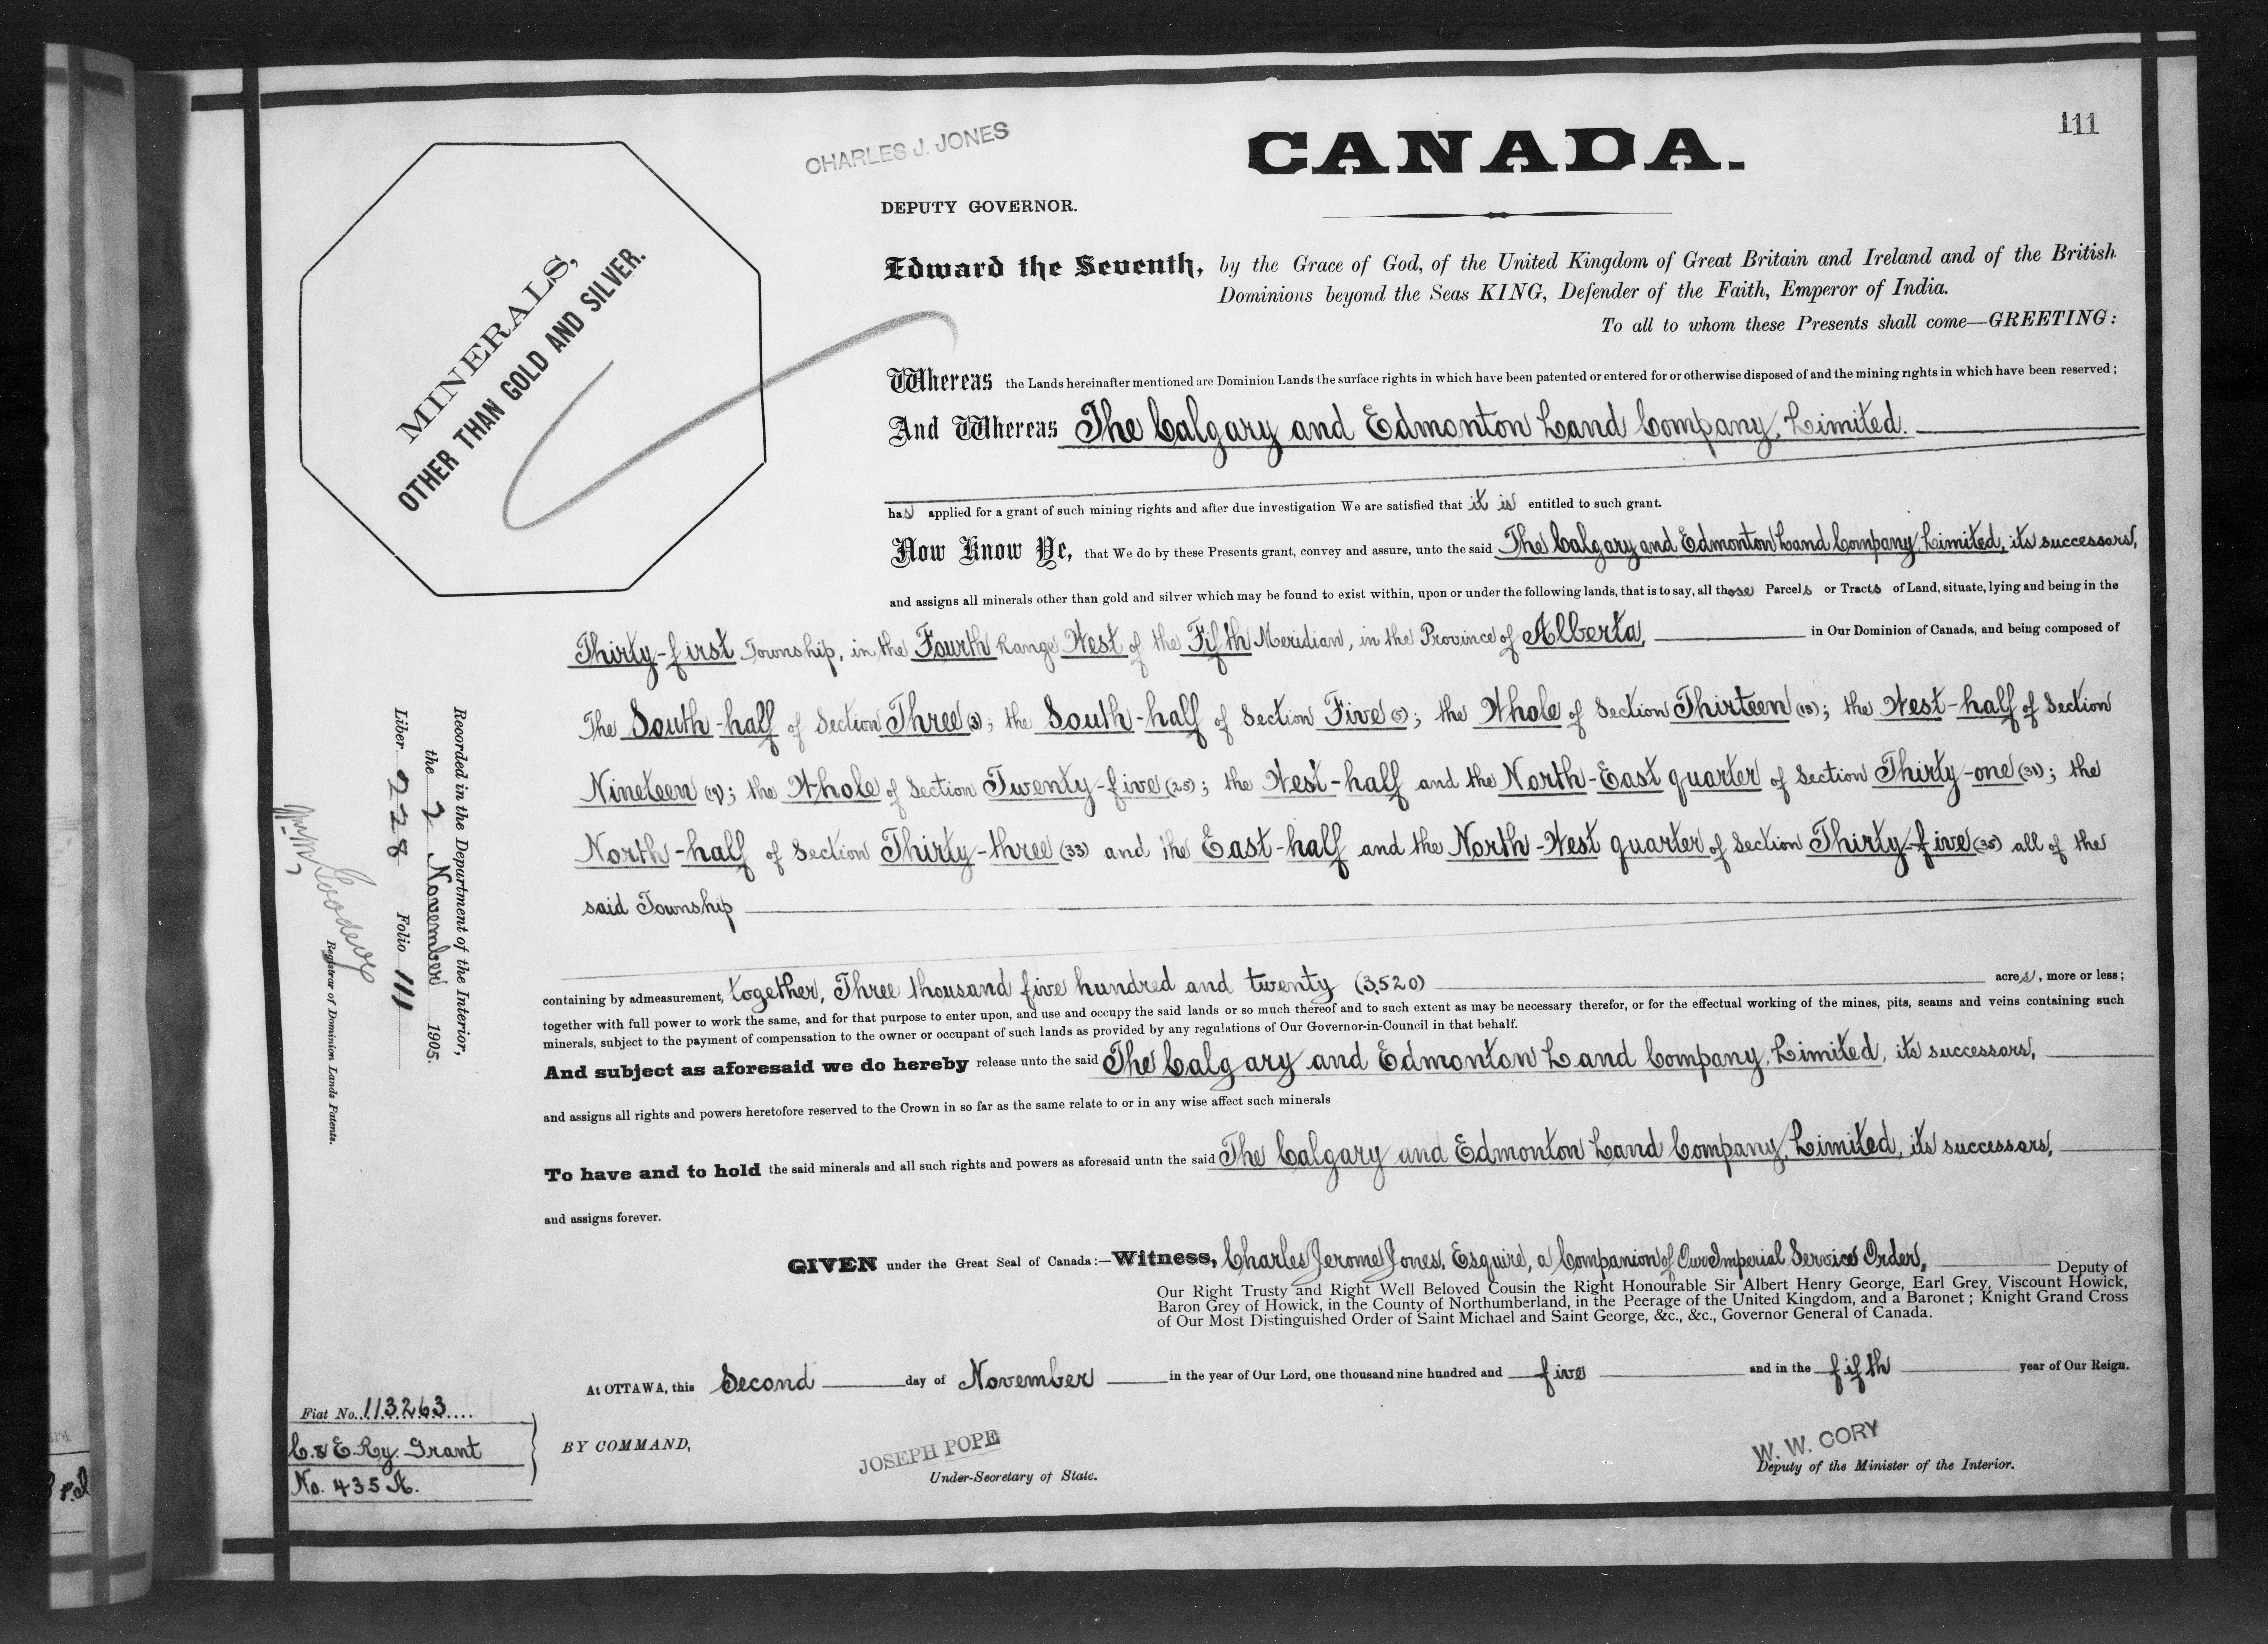 111
CHARLES J. JONES
CANADA.
DEPUTY GOVERNOR.
MINERALS,
OTHER THAN GOLD AND SILVER.
Edward the Seventh, by the Grace of God, of the United Kingdom of Great Britain and Ireland and of the British
Dominions beyond the Seas KING, Defender of the Faith, Emperor of India.
To all to whom these Presents shall come—GREETING:
Whereas the Lands hereinafter mentioned are Dominion Lands the surface rights in which have been patented or entered for or otherwise disposed of and the mining rights in which have been reserved;
And Whereas The Calgary and Edmonton Land Company, Limited.
has applied for a grant of such mining rights and after due investigation We are satisfied that it is entitled to such grant.
Now Know Ye, that We do by these Presents grant, convey and assure, unto the said The Calgary and Edmonton Land Company, Limited, its successors,
and assigns all minerals other than gold and silver which may be found to exist within, upon or under the following lands, that is to say, all those Parcels or Tracts of Land, situate, lying and being in the
Thirty-first Township, in the Fourth Range West of the Fifth Meridian, in the Province of Alberta, in Our Dominion of Canada, and being composed of
The South-half of Section Three (3); the South-half of Section Five (5); the Whole of Section Thirteen (13); the West-half of Section
Nineteen (19); the Whole of Section Twenty-five (25); the West-half and the North-East quarter of Section Thirty-one (31); the
North-half of Section Thirty-three (33) and the East-half and the North-West quarter of Section Thirty-five (35) all of the
said Township
containing by admeasurement, together, Three thousand five hundred and twenty (3,520) acres, more or less;
together with full power to work the same, and for that purpose to enter upon, and use and occupy the said lands or so much thereof and to such extent as may be necessary therefor, or for the effectual working of the mines, pits, seams and veins containing such
minerals, subject to the payment of compensation to the owner or occupant of such lands as provided by any regulations of Our Governor-in-Council in that behalf.
And subject as aforesaid we do hereby release unto the said The Calgary and Edmonton Land Company, Limited, its successors,
and assigns all rights and powers heretofore reserved to the Crown in so far as the same relate to or in any wise affect such minerals
To have and to hold the said minerals and all such rights and powers as aforesaid untn the said The Calgary and Edmonton Land Company, Limited, its successors,
and assigns forever.
GIVEN under the Great Seal of Canada:—Witness, Charles Jerome Jones, Esquire, a Companion of Our Imperial Service Order, Deputy of
Our Right Trusty and Right Well Beloved Cousin the Right Honourable Sir Albert Henry George, Earl Grey, Viscount Howick,
Baron Grey of Howick, in the County of Northumberland, in the Peerage of the United Kingdom, and a Baronet; Knight Grand Cross
of Our Most Distinguished Order of Saint Michael and Saint George, &c., &c., Governor General of Canada.
At OTTAWA, this Second day of November in the year of Our Lord, one thousand nine hundred and five and in the fifth year of Our Reign.
BY COMMAND,
JOSEPH POPE
Under-Secretary of State.
W. W. CORY
Deputy of the Minister of the Interior.
Fiat No. 113263
C. & E. Ry. Grant
No. 435 A.
Recorded in the Department of the Interior,
the 2 November 1905.
Liber 228 Folio 111
Registrar of Dominion Lands Patents.